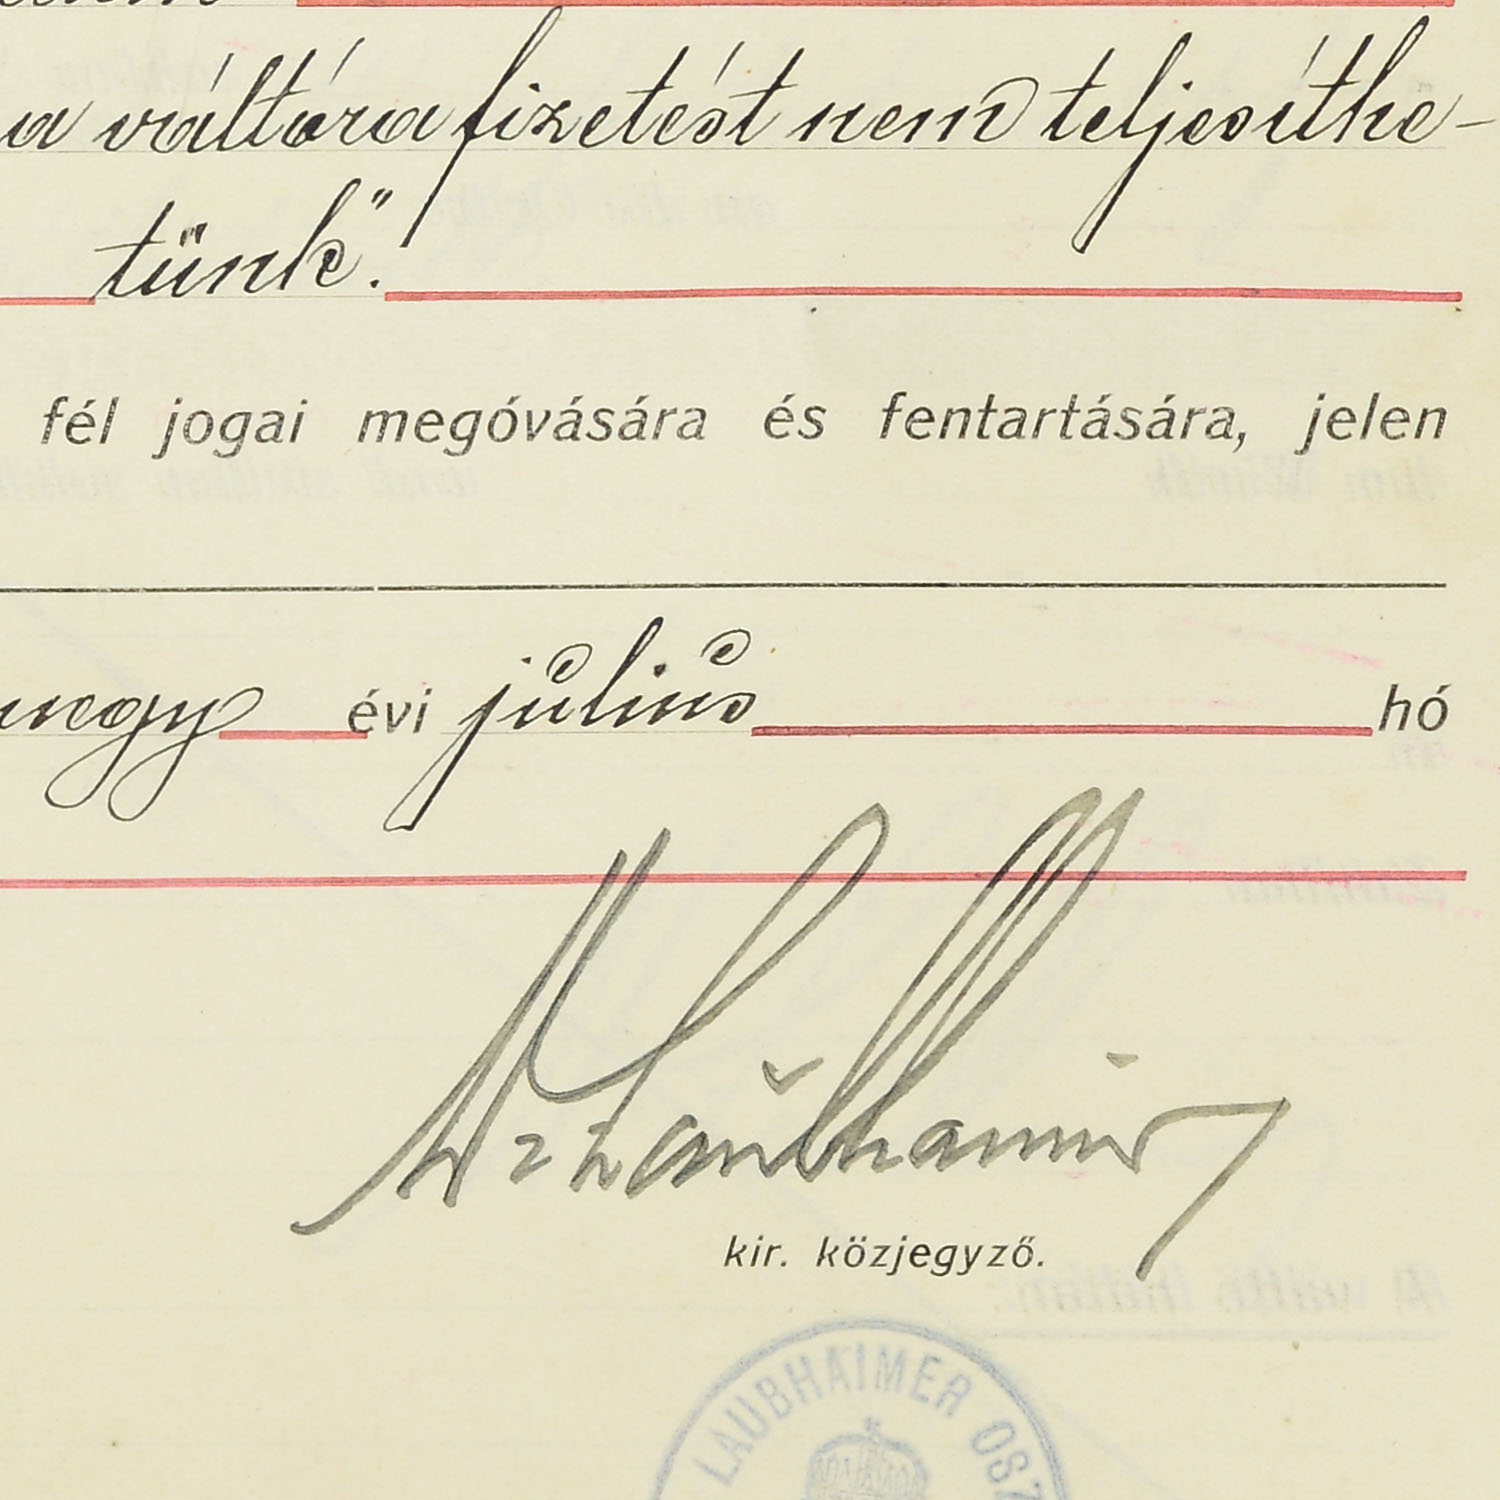 a váltóra fizetést nem teljesíthe-
tünk".
fél jogai megóvására és fentartására, jelen
négy évi július hó
Laubhaimer
kir. közjegyző.
LAUBHAIMER OSZ